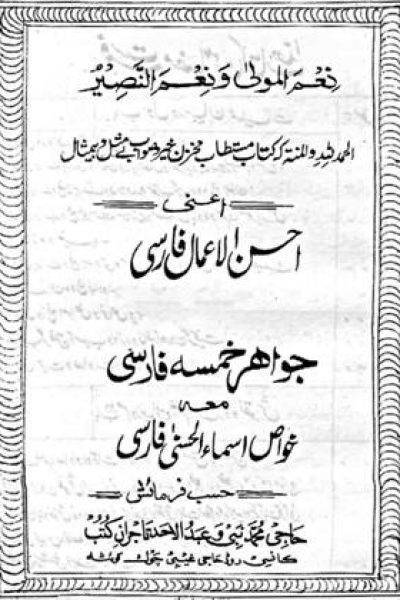 نِعْمَ المولیٰ وَ نِعْمَ النَّصِیْرُ
الحمد للہ والمنۃ کہ کتاب مستطاب مخزن خیر و صواب بے مثل و بیمثال
اعنی
احسن الاعمال فارسی
جواھر خمسه فارسی
معه
خواص اسماء الحسنیٰ فارسی
حسب فرمائش
حاجی محمد نبی و عبد الاحد تاجران کتب
کانسی روڈ حاجی غیبی چوک کوئٹہ